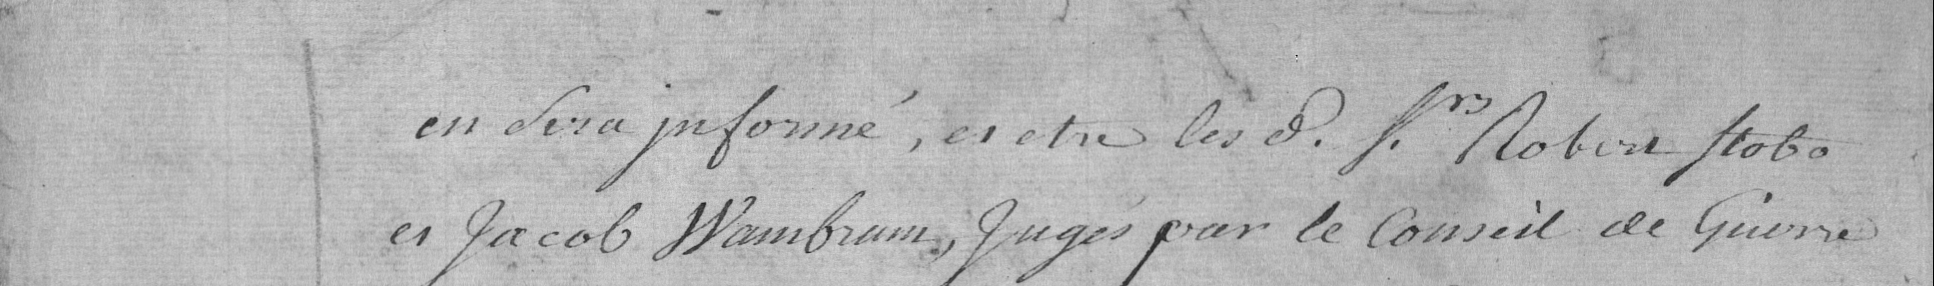 en sera informé, et etre les d. S.rs Robert Stobo
et Jacob Wambrum, Jugés par le Conseil de Guerre